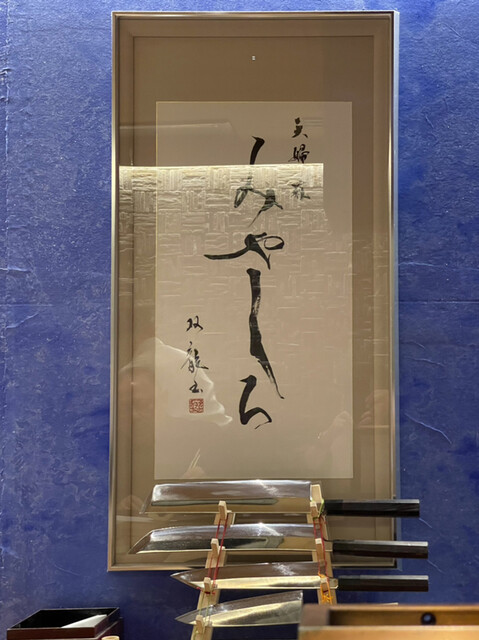 夫婦
みやしろ
双龍書